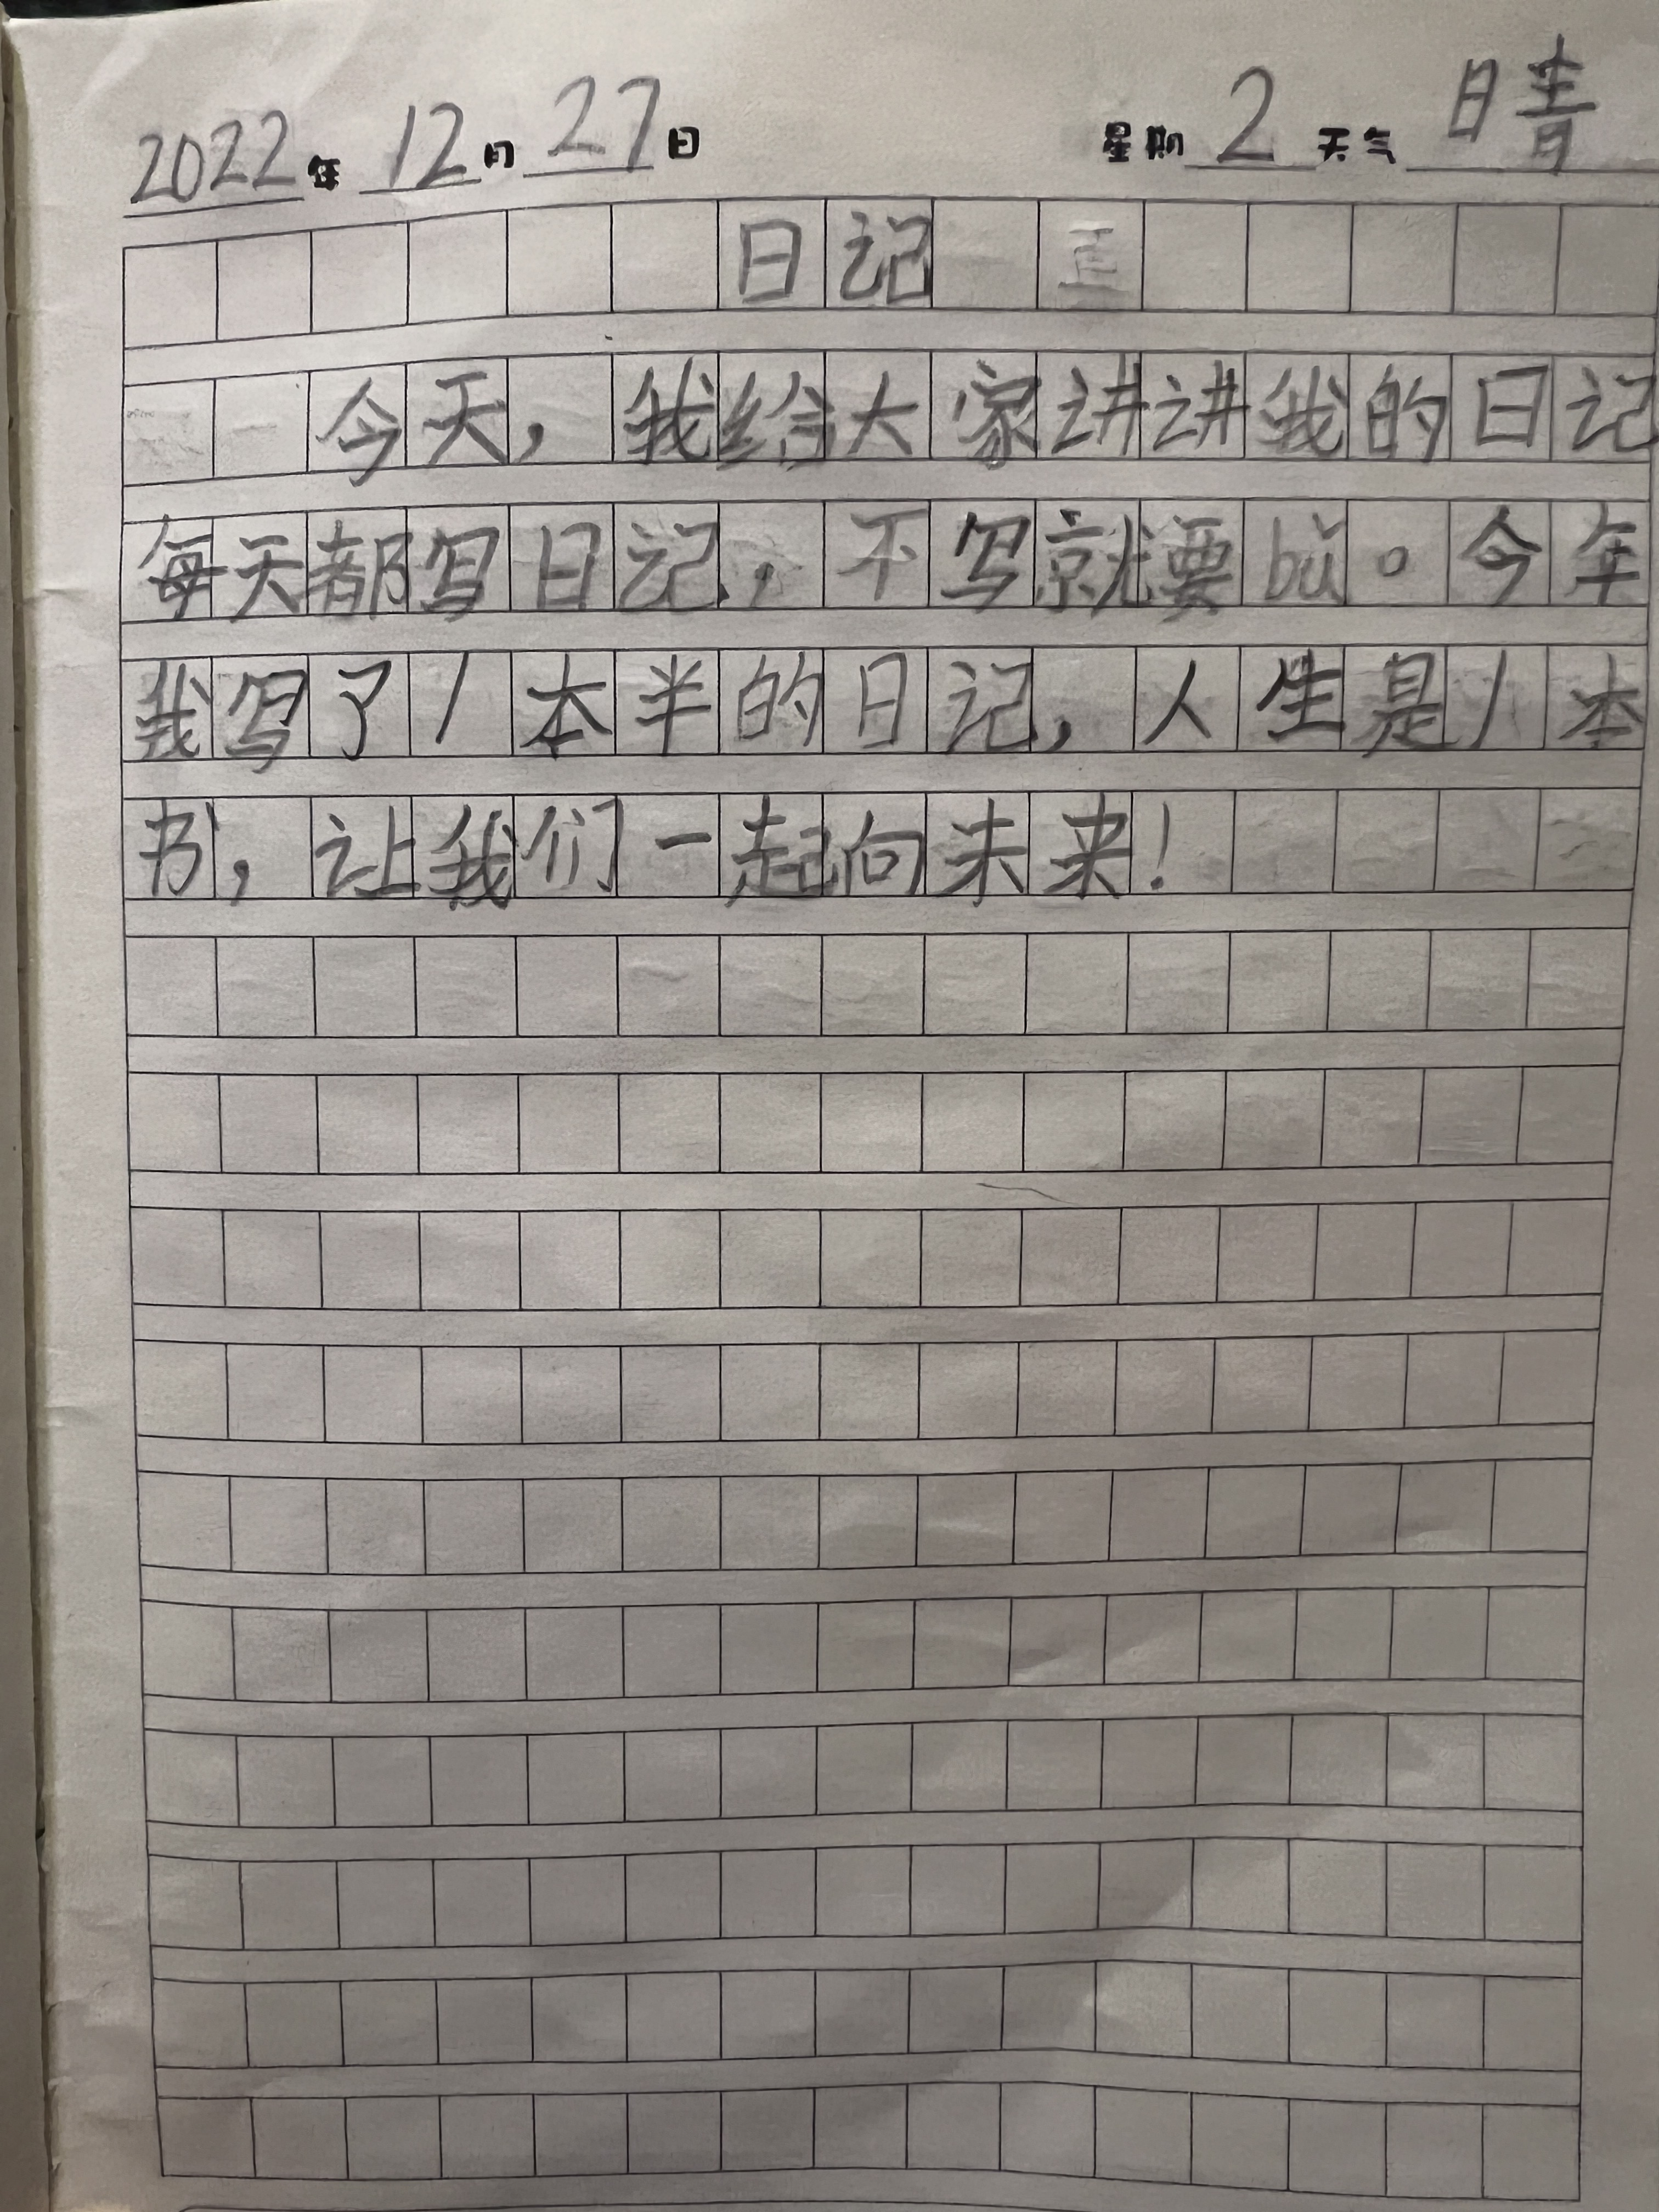 2022年12月27日 星期2 天气晴
日记
今天，我给大家讲讲我的日记
每天都写日记，不写就要bǔ。今年
我写了1本半的日记，人生是1本
书，让我们一起向未来！